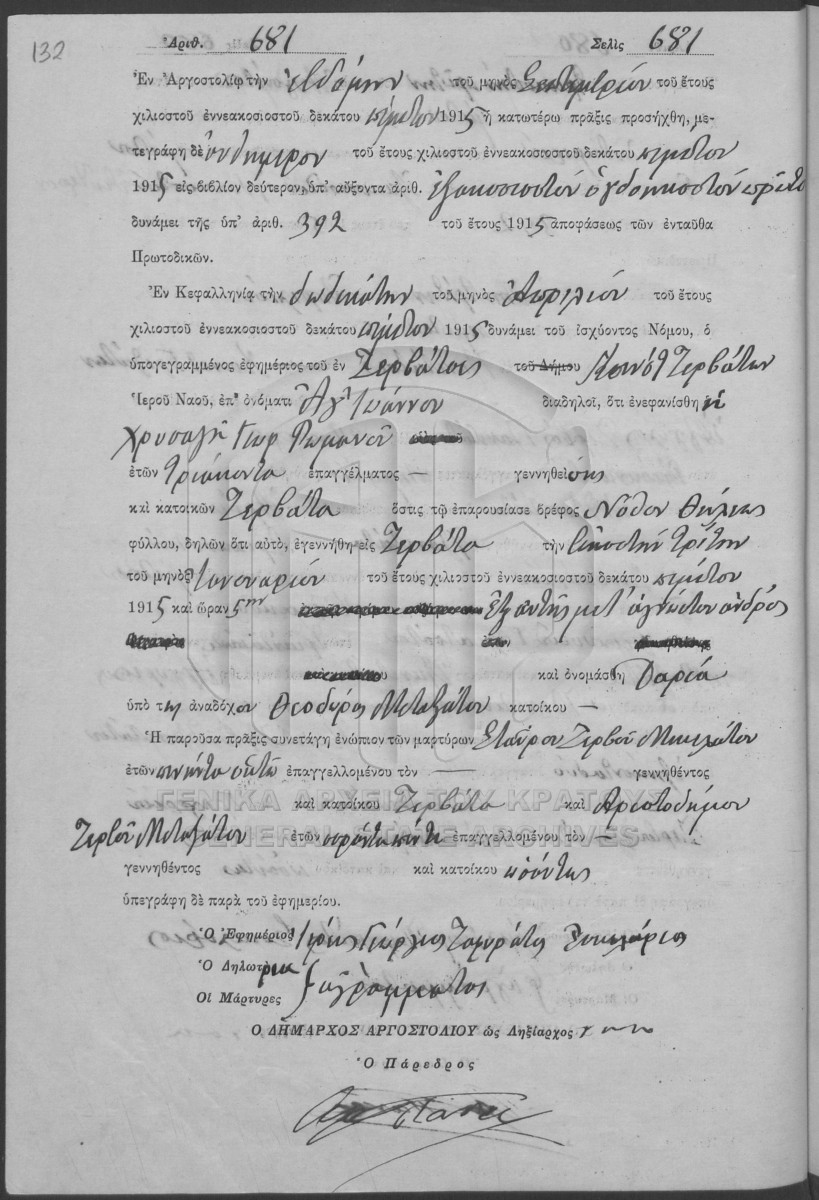 132
Ἀριθ. 681 Σελὶς 681
Ἐν Ἀργοστολίῳ τὴν ἑβδόμην τοῦ μηνὸς Σεπτεμβρίου τοῦ ἔτους
χιλιοστοῦ ἐννεακοσιοστοῦ δεκάτου πέμπτου 1915 ἡ κατωτέρω πρᾶξις προσήχθη, με-
τεγράφη δὲ αὐθημερὸν τοῦ ἔτους χιλιοστοῦ ἐννεακοσιοστοῦ δεκάτου πέμπτου
1915 εἰς βιβλίον δεύτερον, ὑπ' αὔξοντα ἀριθ. ἑξακοσιοστὸν ὀγδοηκοστὸν πρῶτον
δυνάμει τῆς ὑπ' ἀριθ. 392 τοῦ ἔτους 1915 ἀποφάσεως τῶν ἐνταῦθα
Πρωτοδικῶν.
Ἐν Κεφαλληνίᾳ τὴν δωδεκάτην τοῦ μηνὸς Ἀπριλίου τοῦ ἔτους
χιλιοστοῦ ἐννεακοσιοστοῦ δεκάτου πέμπτου 1915 δυνάμει τοῦ ἰσχύοντος Νόμου, ὁ
ὑπογεγραμμένος ἐφημέριος τοῦ ἐν Ζερβάτοις τοῦ Δήμου Κοινότ Ζερβάτων
Ἱεροῦ Ναοῦ, ἐπ' ὀνόματι Ἁγ Ἰωάννου διαδηλοῖ, ὅτι ἐνεφανίσθη ἡ
Χρυσαγῆ Γεωρ Ρωμανοῦ
ἐτῶν τριάκοντα ἐπαγγέλματος — γεννηθείσης
καὶ κατοικῶν Ζερβάτα ὅστις τῷ ἐπαρουσίασε βρέφος Νόθον θήλεως
φύλλου, δηλῶν ὅτι αὐτὸ, ἐγεννήθη εἰς Ζερβάτα τὴν εἰκοστὴν τρίτην
τοῦ μηνὸς Ἰανουαρίου τοῦ ἔτους χιλιοστοῦ ἐννεακοσιοστοῦ δεκάτου πέμπτου
1915 καὶ ὥραν 5ην ἐξ αὐτῆς μετ' ἀγνώστου ἀνδρὸς
καὶ ὀνομάσθη Δαρεία
ὑπὸ τῆς ἀναδόχου Θεοδώρας Μεταξάτου κατοίκου —
Ἡ παροῦσα πρᾶξις συνετάγη ἐνώπιον τῶν μαρτύρων Σταύρου Ζερβοῦ Μικελάτου
ἐτῶν πενῆντα ὀκτὼ ἐπαγγελλομένου τὸν — γεννηθέντος
καὶ κατοίκου Ζερβάτα καὶ Ἀριστοδήμου
Ζερβοῦ Μεταξάτου ἐτῶν σαράντα πέντε ἐπαγγελλομένου τὸν —
γεννηθέντος καὶ κατοίκου
ὑπεγράφη δὲ παρὰ τοῦ ἐφημερίου.
Ὁ Ἐφημέριος Ἱερεὺς Γεώργιος
Ὁ Δηλωτ
Οἱ Μάρτυρες } ἀγράμματος
Ο ΔΗΜΑΡΧΟΣ ΑΡΓΟΣΤΟΛΙΟΥ ὡς Ληξίαρχος
Ὁ Πάρεδρος
ΓΕΝΙΚΑ ΑΡΧΕΙΑ ΤΟΥ ΚΡΑΤΟΥΣ
GENERAL STATE ARCHIVES